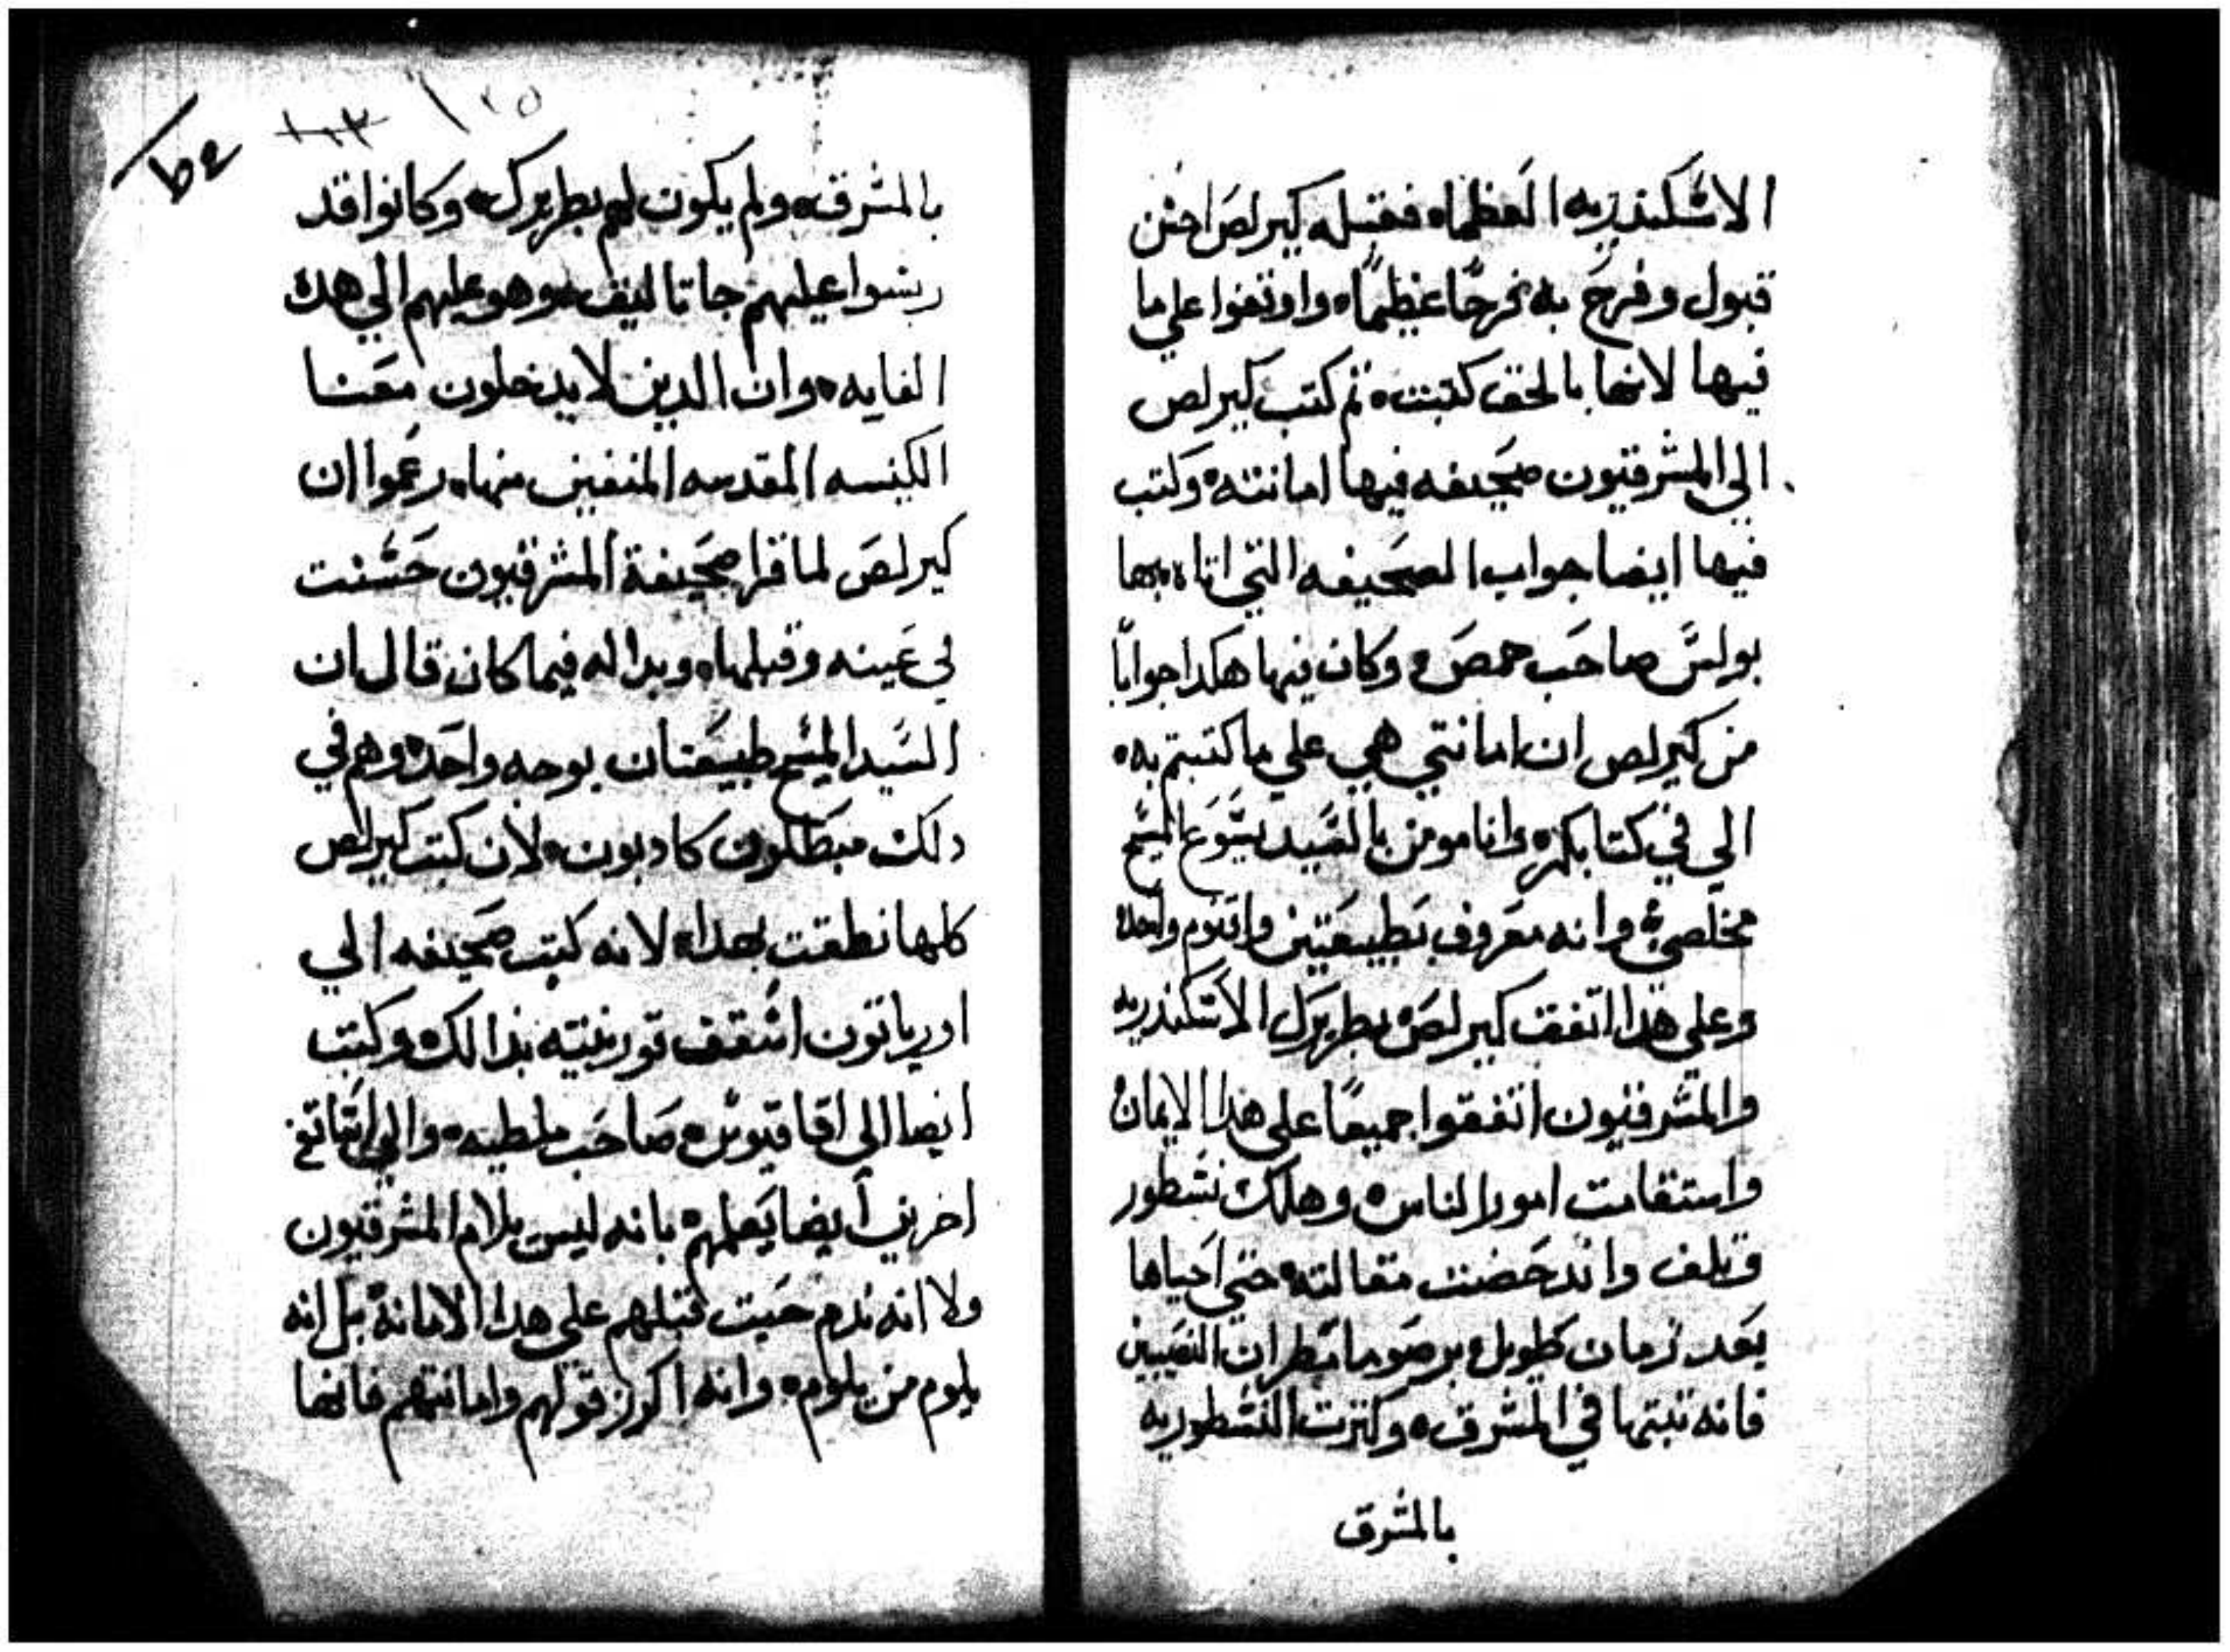 الاسكندريه العظما ه فقبله كيرلص احسن
قبول وفرح به فرحًا عظيمًا ه واوقفوا علي ما
فيها لانها بالحق كتبت ه ثم كتب كيرلص
الي المشرقيون صحيفه فيها امانته ه وكتب
فيها ايضا جواب الصحيفه التي اتاه بها
بولس صاحب حمص ه وكان فيها هكدا جوابًا
من كيرلص ان امانتي هي علي ما كتبتم به ه
الي في كتابكم ه وانا مومن بالسيد يسوع المسيح
مخلصي ه وانه معروف بطبيعتين واقنوم واحد
وعلي هدا اتفق كيرلص بطريرك الاسكندريه
والمشرقيون اتفقوا جميعًا علي هدا الايمان
واستقامت امور الناس ه وهلك نسطور
وتلف واندحضت مقالته ه حتي احياها
بعد زمان طويل برصوما مطران النصيبين
فانه ثبتها في المشرق ه وكترت النسطوريه
بالمشرق
١٢٥
بالمشرق ه ولم يكون لهم بطريرك ه وكانوا قد
ريسوا عليهم جاتاليق ه وهو عليهم الي هده
الغايه ه وان الدين لا يدخلون معنا
الكنيسه المقدسه المنفين منها ه زعموا ان
كيرلص لما قرا صحيفة المشرقيون حسنت
في عينه وقبلها ه وبدا له فيما كان قال ان
السيد المسيح طبيعتان بوجه واحد ه وهم في
دلك مبطلون كادبون ه لان كتب كيرلص
كلها نطقت بهدا ه لانه كتب صحيفه الي
اسقف بدالك ه وكتب
ايضا الي اقاقيوس ه صاحب ملطيه ه والي اساقفه
اخرين ايضا يعلمهم بانه ليس يلام المشرقيون
ولا انه ندم حيت قبلهم علي هدا الامانه بل انه
يلوم من يلوم ه وانه اكرز قولهم وامانتهم فانها